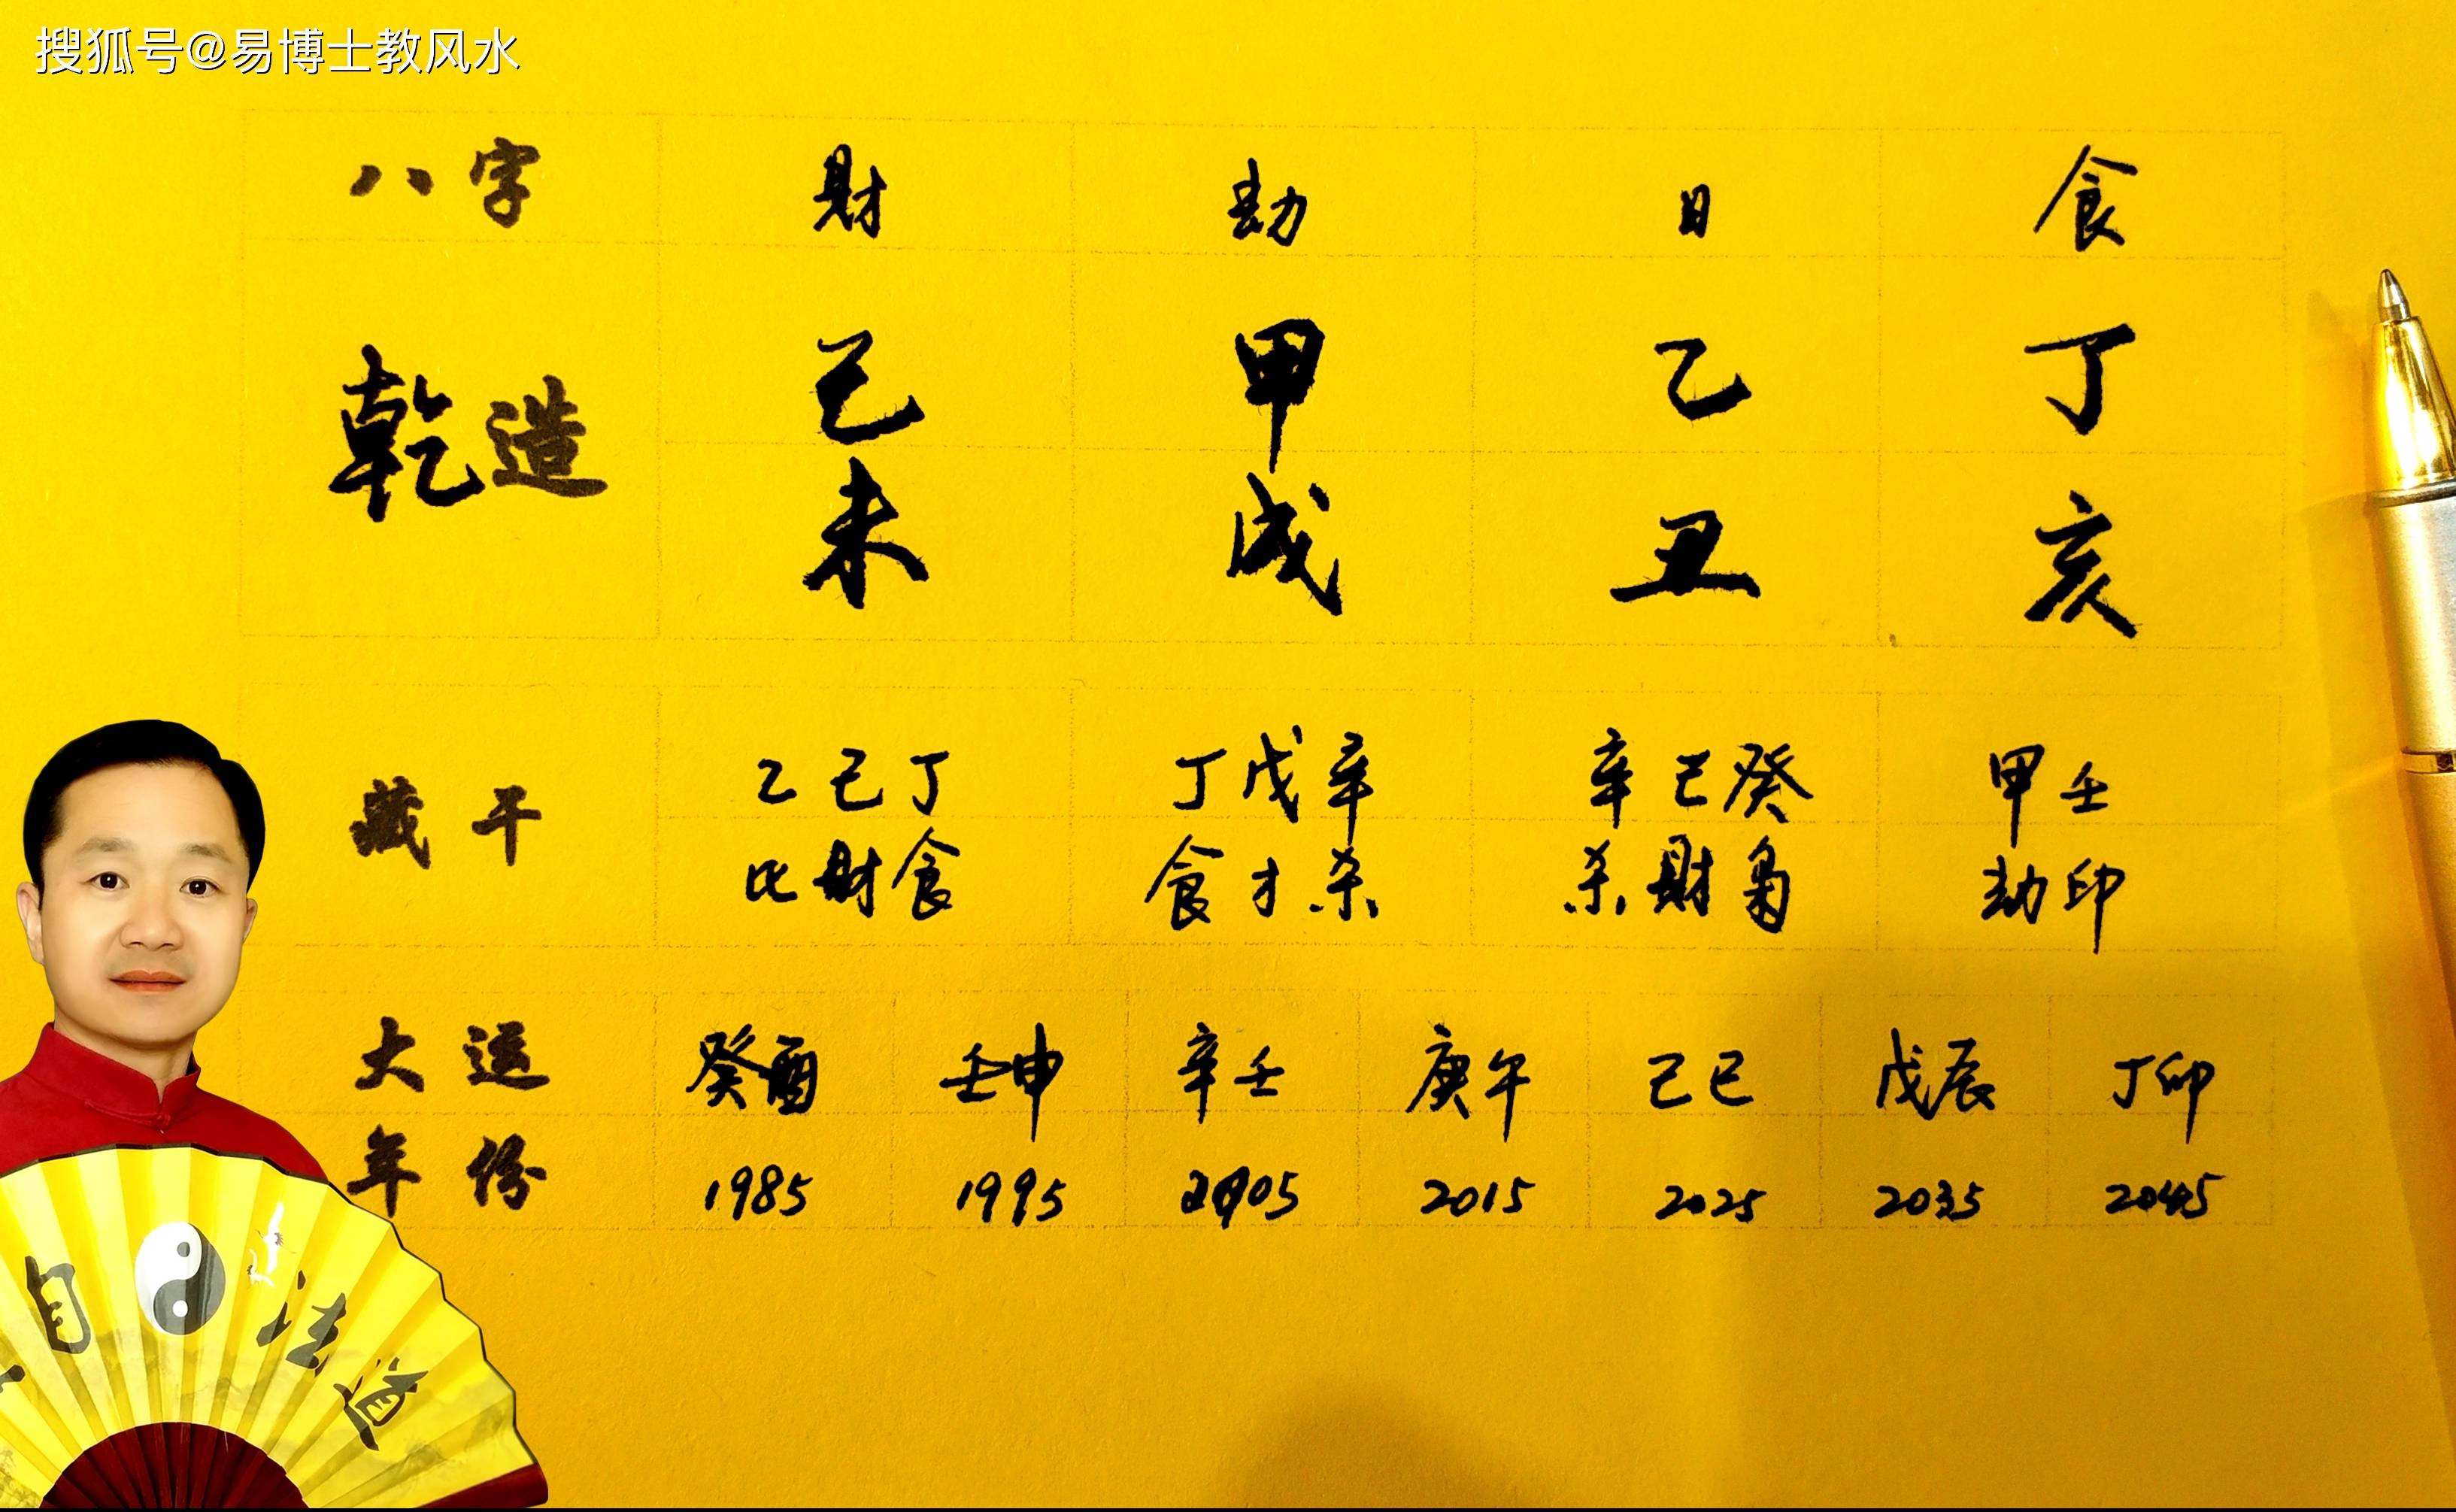 搜狐号@易博士教风水
八字 財 劫 日 食
乾造 己 甲 乙 丁
未 戌 丑 亥
藏干 乙己丁 丁戊辛 辛己癸 甲壬
比財食 食才杀 杀財枭 劫印
大运 癸酉 壬申 辛壬 庚午 己巳 戊辰 丁卯
年份 1985 1995 2005 2015 2025 2035 2045
自 法道